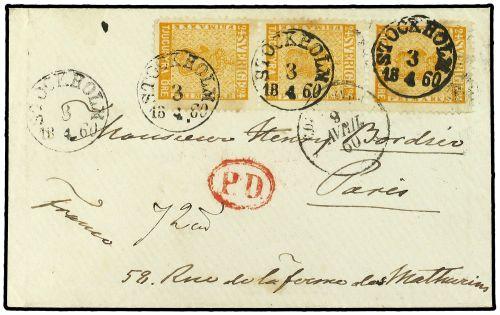 SVERIGE
TJUGOFYRA ÖRE
STOCKHOLM
3
18 4 60
STOCKHOLM
3
18 4 60
STOCKHOLM
3
18 4 60
STOCKHOLM
3
18 4 60
9
AVRIL
60
Monsieur Henry Bordier
P.D.
Paris
Franco
72
58. Rue de la ferme des Mathurins